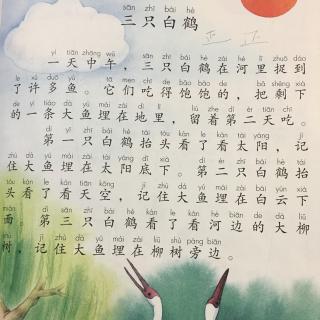 三只白鹤
一天中午，三只白鹤在河里捉到
了许多鱼。它们吃得饱饱的，把剩下
的一条大鱼埋在地里，留着第二天吃。
第一只白鹤抬头看了看太阳，记
住大鱼埋在太阳底下。第二只白鹤抬
头看了看天空，记住大鱼埋在白云下
面。第三只白鹤看了看河边的大柳
树，记住大鱼埋在柳树旁边。